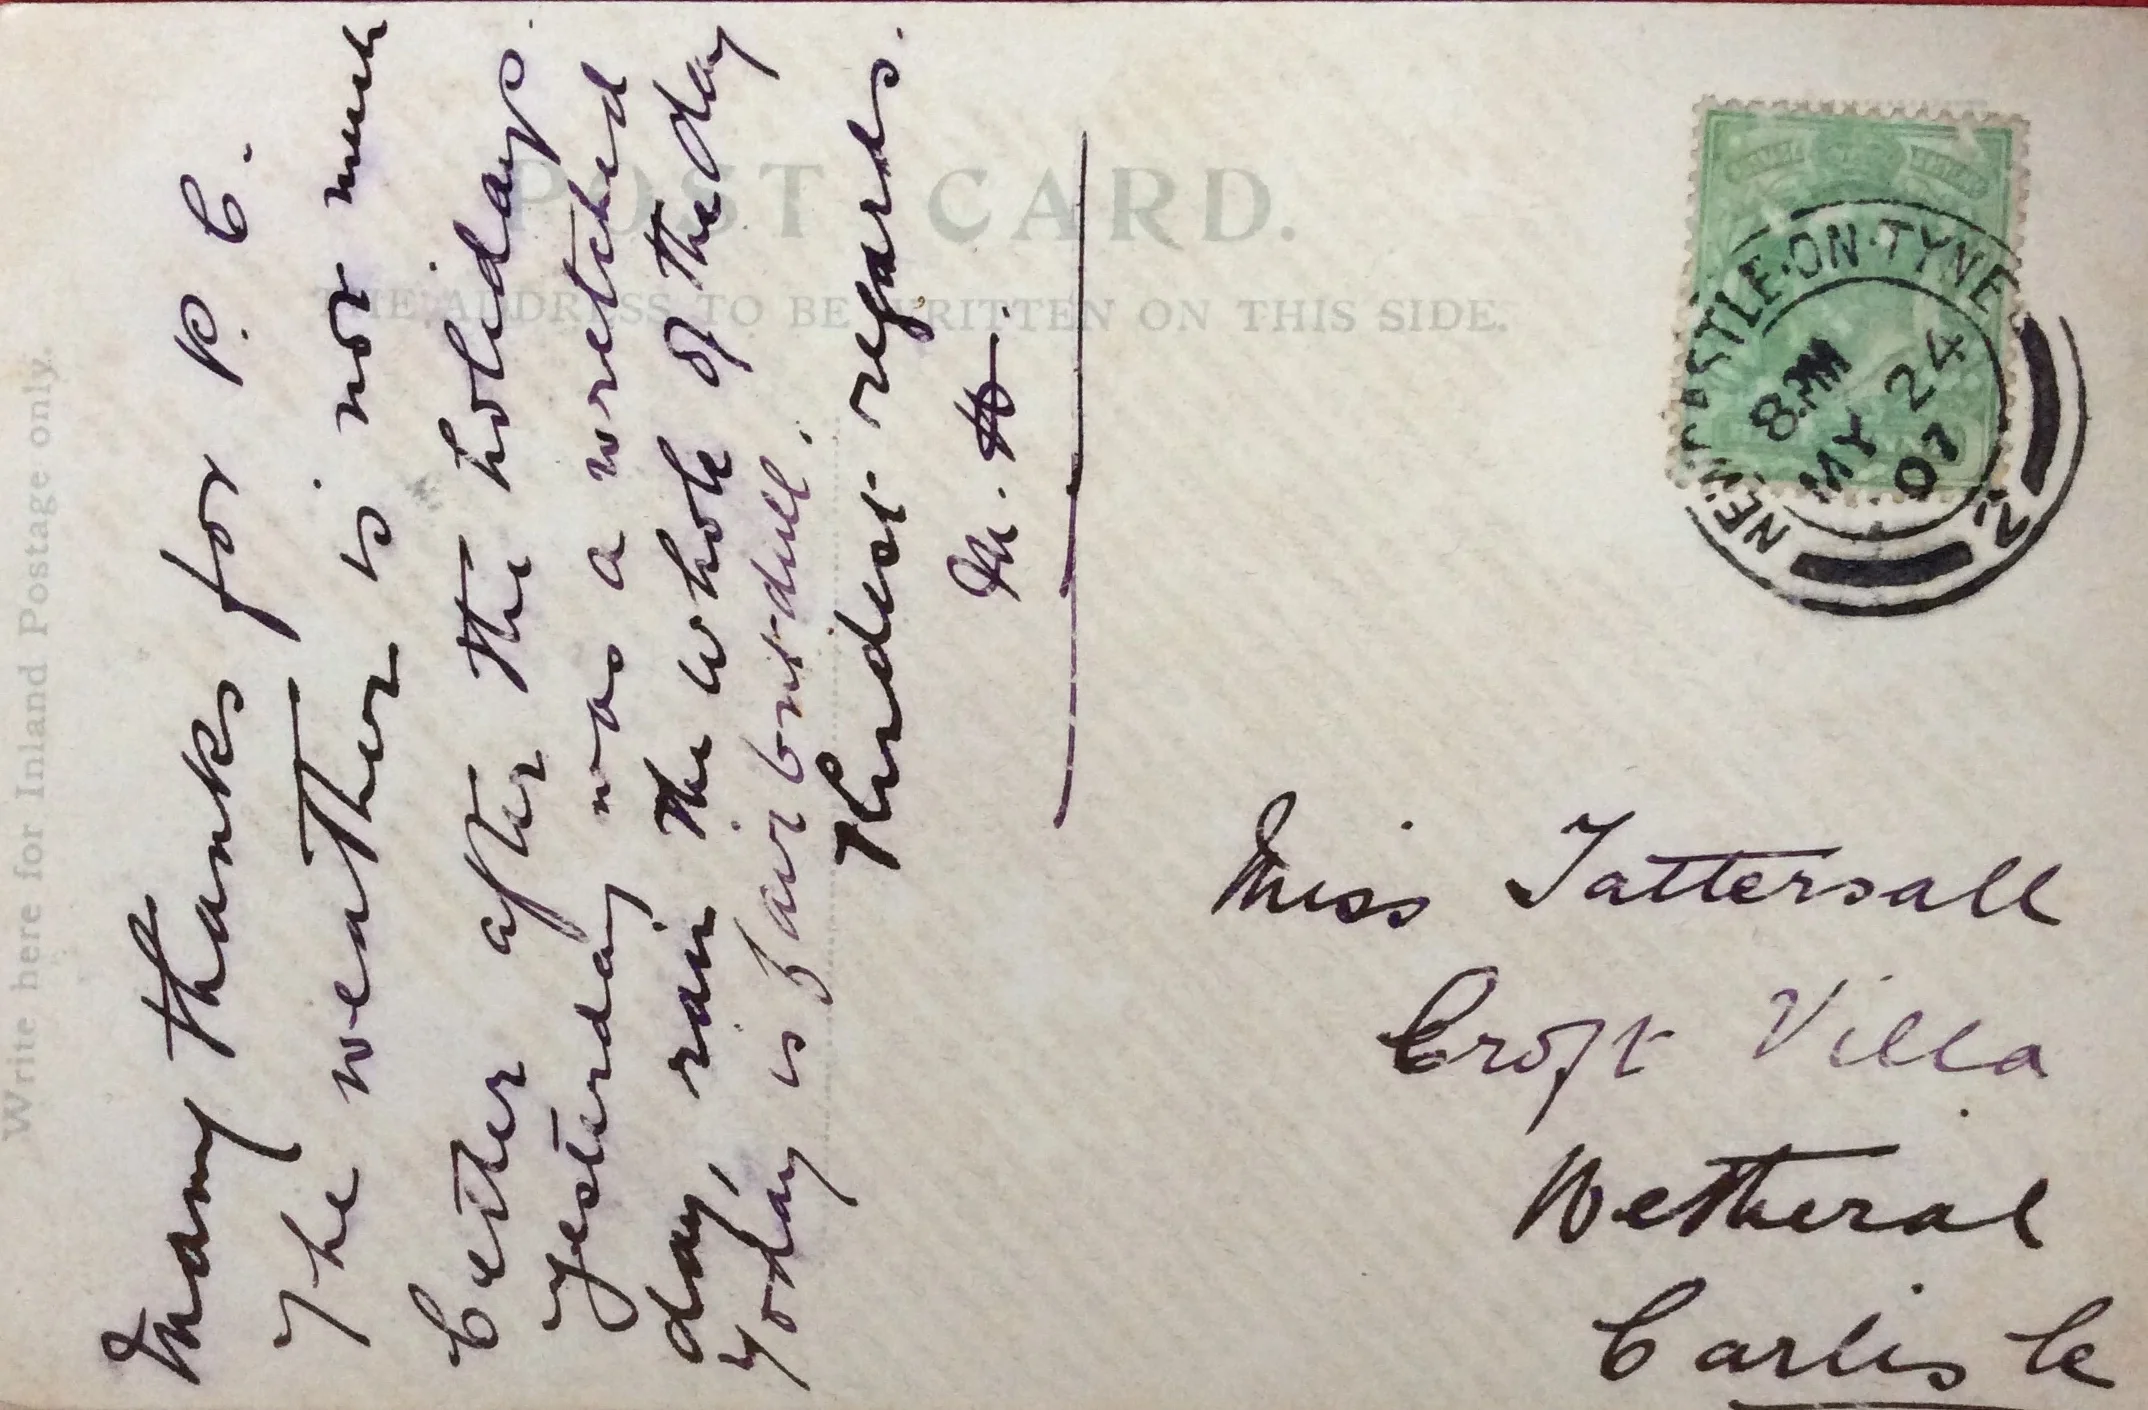 POST CARD.
THE ADDRESS TO BE WRITTEN ON THIS SIDE.
Write here for Inland Postage only.
Many thanks for P. C.
The weather is not much
better after the holidays.
Yesterday was a wretched
day, rain the whole of the day
today is fair but dull.
Kindest regards.
M. H.
NEWCASTLE·ON·TYNE
8. PM
MY 24
07
2
Miss Tattersall
Croft Villa
Wetheral
Carlisle